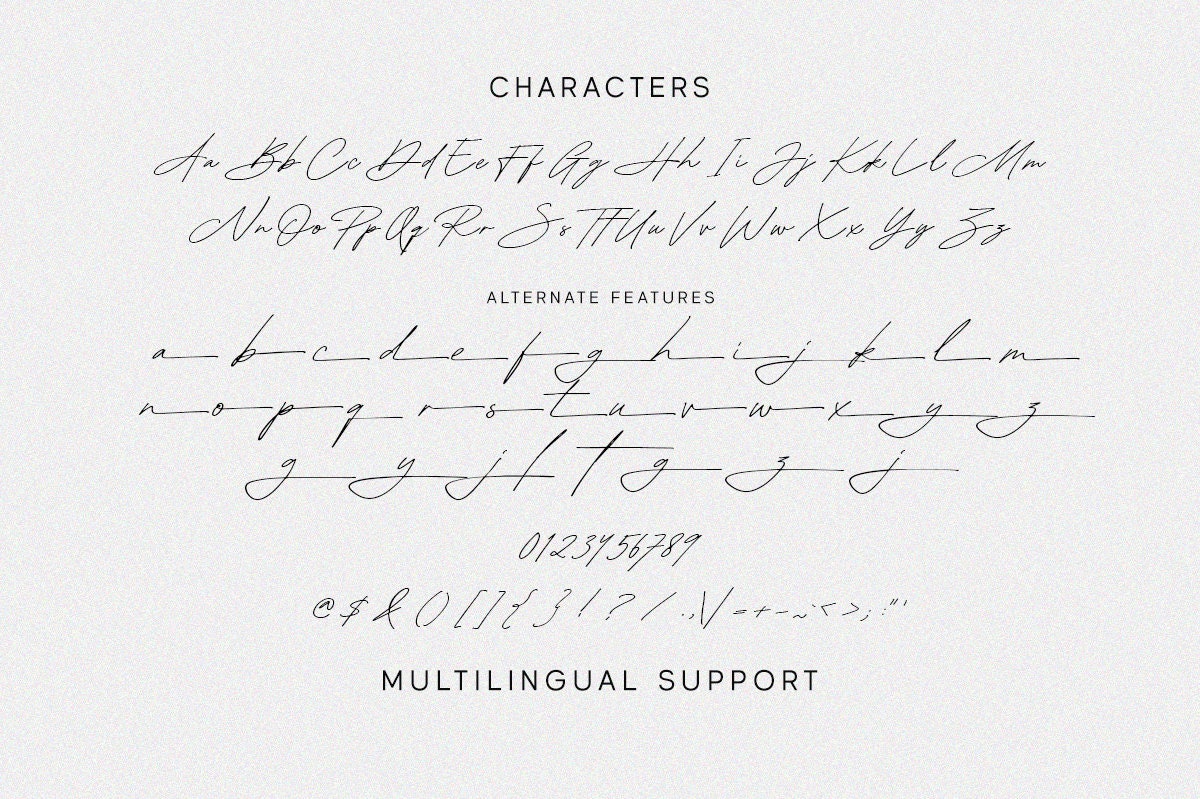 CHARACTERS
Aa Bb Cc Dd Ee Ff Gg Hh Ii Jj Kk Ll Mm
Nn Oo Pp Qq Rr Ss Tt Uu Vv Ww Xx Yy Zz
ALTERNATE FEATURES
a b c d e f g h i j k l m
n o p q r s t u v w x y z
g y j t g z j
0123456789
@ $ & ( ) [ ] { } ! ? / . , \ | = + - ~ < > ; : " '
MULTILINGUAL SUPPORT